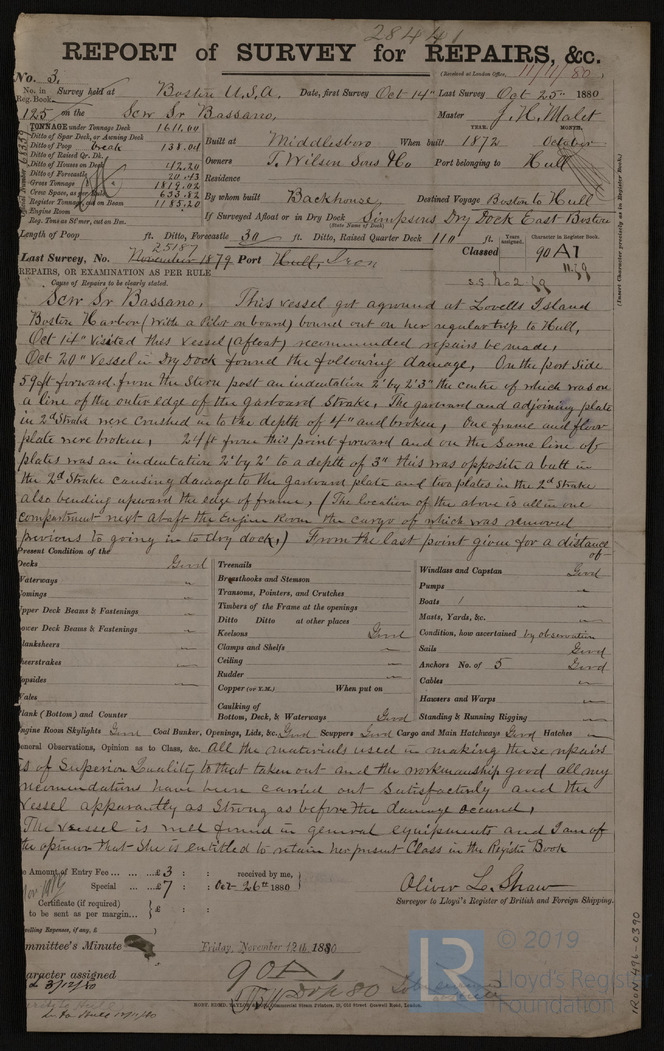 28441
REPORT of SURVEY for REPAIRS, &c.
No. 3. (Received at London Office, 11/11/80.)
No. in Reg. Book. Survey held at Boston U.S.A. Date, first Survey Oct 14" Last Survey Oct 25th 1880
125 on the Scw Sr Bassano, Master J. H. Malet
TONNAGE under Tonnage Deck 1611.00
Ditto of Spar Deck, or Awning Deck
Ditto of Poop break 138.01
Ditto of Raised Qr. Dk.
Ditto of Houses on Deck 42.20
Ditto of Forecastle 20.43
Gross Tonnage 1819.02
Crew Space, as per Rule 633.82
Register Tonnage, cut on Beam 1185.20
Engine Room
Reg. Tons as St'mer, cut on Bm.
YEAR. MONTH.
Built at Middlesboro When built 1872 October
Owners T. Wilson Sons & Co Port belonging to Hull
Residence
By whom built Backhouse, Destined Voyage Boston to Hull
If Surveyed Afloat or in Dry Dock Simpsons Dry Dock East Boston
(State Name of Dock)
Length of Poop ft. Ditto, Forecastle 30 ft. Ditto, Raised Quarter Deck 110 ft.
Years assigned. Character in Register Book.
Classed 90 A1
11.79
s.s. No 2. 79
25187
Last Survey, No. November 1879 Port Hull, Iron
(Insert Character precisely as in Register Book.)
REPAIRS, OR EXAMINATION AS PER RULE
Cause of Repairs to be clearly stated.
Scw Sr Bassano, This vessel got aground at Lovells Island
Boston Harbor (With a Pilot on board) bound out on her regular trip to Hull,
Oct 14" visited this vessel (afloat) recommended repairs be made,
Oct 20" Vessel in Dry Dock found the following damage, On the port side
59 feet forward from the Stern post an indentation 2' by 2' 3" the centre of which was on
a line of the outer edge of the Garboard Strake, The garboard and adjoining plate
in 2d Strake were crushed in to the depth of 4" and broken, One frame and floor
plate were broken, 24 ft from this point forward and on the same line of
plates was an indentation 2' by 2' to a depth of 3" this was opposite a butt in
the 2d Strake causing damage to the garboard plate and two plates in the 2d Strake
also bending upward the edge of frame, (The location of the above is all in one
compartment next abaft the Engine Room the cargo of which was removed
previous to going in to dry dock,) From the last point given for a distance
of
Present Condition of the
Decks Good
Waterways "
Comings "
Upper Deck Beams & Fastenings "
Lower Deck Beams & Fastenings "
Planksheers "
Sheerstrakes "
Topsides "
Wales
Plank (Bottom) and Counter
Treenails
Breasthooks and Stemson
Transoms, Pointers, and Crutches
Timbers of the Frame at the openings
Ditto Ditto at other places
Keelsons Good
Clamps and Shelfs "
Ceiling "
Rudder "
Copper (or Y.M.) When put on
Caulking of
Bottom, Deck, & Waterways Good
Windlass and Capstan Good
Pumps "
Boats "
Masts, Yards, &c. "
Condition, how ascertained by observation
Sails Good
Anchors No. of 5 Good
Cables "
Hawsers and Warps "
Standing & Running Rigging "
Engine Room Skylights Good Coal Bunker, Openings, Lids, &c. Good Scuppers Good Cargo and Main Hatchways Good Hatches "
General Observations, Opinion as to Class, &c. All the materials used in making these repairs
is of Superior Quality to that taken out and the workmanship good all my
recomendations have been carried out Satisfacterly and the
Vessel apparantly as Strong as before the damage occured,
The vessel is well found in general equipments and I am of
the opinion that She is entitled to retain her present Class in the Register Book
The Amount of Entry Fee ... ... £ 3 : : received by me,
Special ... £ 7 : : Oct 26th 1880
Certificate (if required)
to be sent as per margin... £ : :
Travelling Expenses, if any, £
Oliver L. Shaw
Surveyor to Lloyd's Register of British and Foreign Shipping.
Committee's Minute Friday, November 12th 1880
Character assigned 90A1
3/12/80
IRON 496-0390
© 2019
LR
Lloyd's Register
Foundation